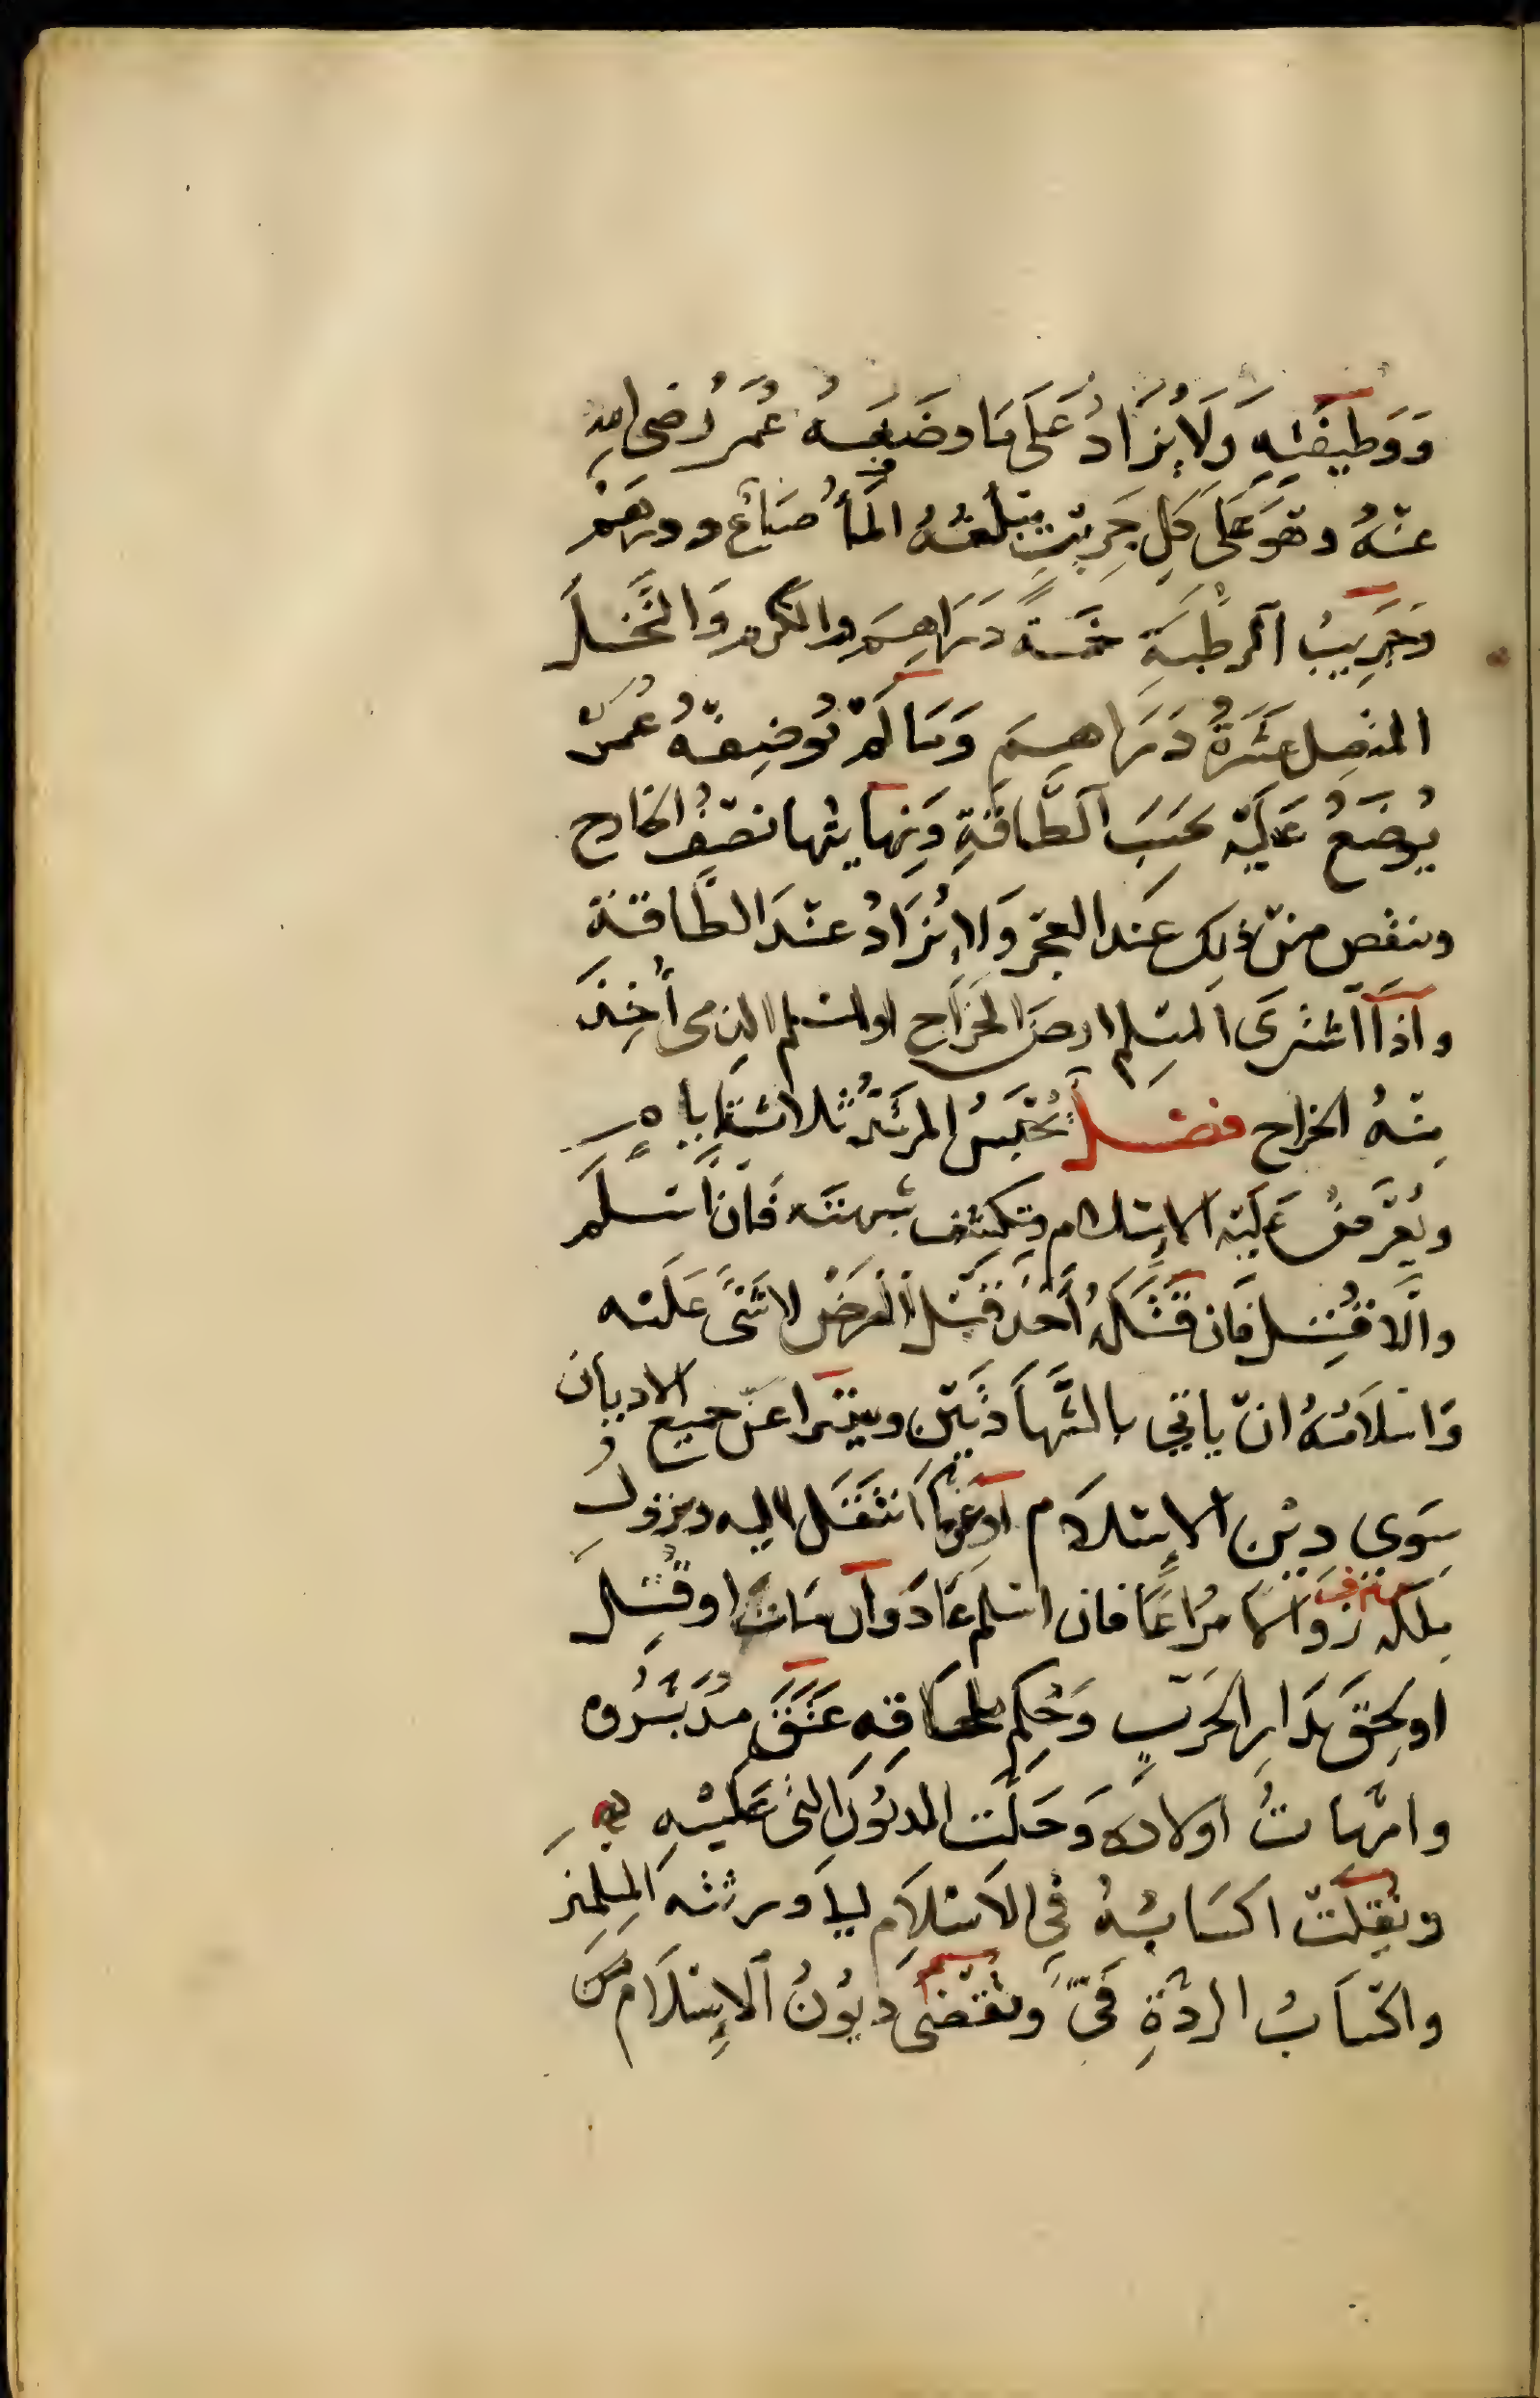 وَوَظِيفَتِهِ وَلَا يُزَادُ عَلَى مَا وضَعَهُ عُمَرُ رَضِى الله
عَنْهُ وَهُوَ عَلَى كُلِ جَرِيبٍ يَبْلُغُهُ المَأُ صَاعٌ وَدِرْهَمٌ
وَجَرِيبُ الرَطْبَةِ خَمْسَةُ دَرَاهِمَ والكَرْمِ وَالنَّخْلِ
المتَّصِلِ عَشَرَةُ دَرَاهِمَ وَمَا لَمْ يُوضِفْهُ عُمَرُ
يُوضَعُ عَلَيْهِ بحَسَبِ الطَّاقَةِ وَنِهَايتُها نصْفُ الخَارج
وينقص مِنْ ذَلِكَ عَنْدَ العَجْز وَلَا يُزَادُ عنْدَ الطَّاقَةِ
وَاذَا اشْتَرَى المسْلِم ارض الخَرَاج او اسْلم الذمى أُخِذَ
مِنْهُ الخراج فصْل يُحْبَسُ المرْتَدُّ ثَلاثَةَ ايام
ويُعْرَضُ عَلَيْهِ الإسْلَام وتكْشف شبهته فَان أَسْلَم
وَالَّا قُتِلَ فَان قَتَلَهُ أَحَدٌ قَبْلَ العَرْضِ لا شَىْ عَلَيْه
وَاسْلَامُهُ ان يأتي بالشَّهَادَتَيْنِ ويتبرا عَنْ جميع الاديان
سِوَى دِيْنِ الإسْلَام اوْ عَمَّا انْتَقَلَ اليه ويزوُل
مِلكه زَوَالًا مُرَاعًا فان اسْلم عَادَ وَان مَاتَ او قُتِلَ
او لَحِقَ بدَارِ الحَرْبِ وَحُكِمَ بلحَاقِهِ عَتَقَ مُدَبَّرُوه
وامَّهَاتُ اولاده وَحَلَّت الديُون التى عَلَيْهِ
ونُقِلَتْ اكسَابُهُ فِى الاسْلَام الى وَرثته المسْلِمِينَ
واكْسَابُ الردّةِ فَىْ وَتقْضَى دُيُونُ الإسْلَام مِن